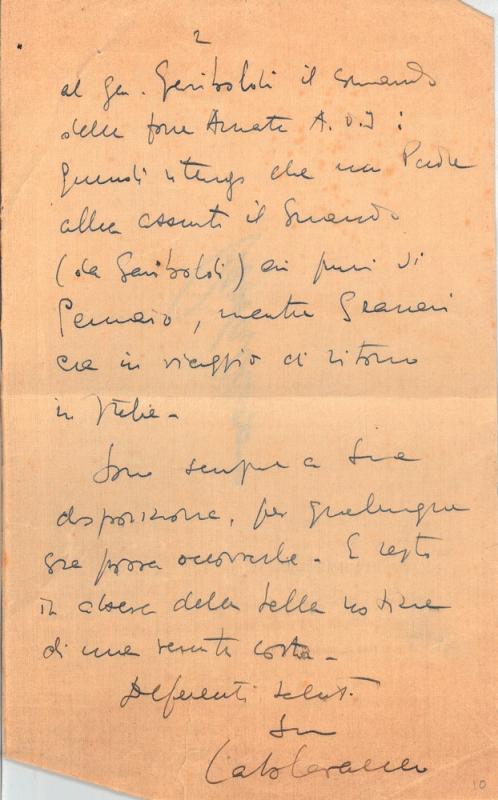 2
al Gen. Gariboldi il comando
delle forze Armate A.O.I :
quindi ritengo che suo Padre
abbia assunto il Comando
(da Gariboldi) ai primi di
Gennaio, mentre Graziani
era in viaggio di ritorno
in Italia -
Sono sempre a Sua
disposizione, per qualunque
cosa possa occorrerle - E resto
in attesa della bella notizia
di una venuta costà -
Deferenti saluti
Suo
10